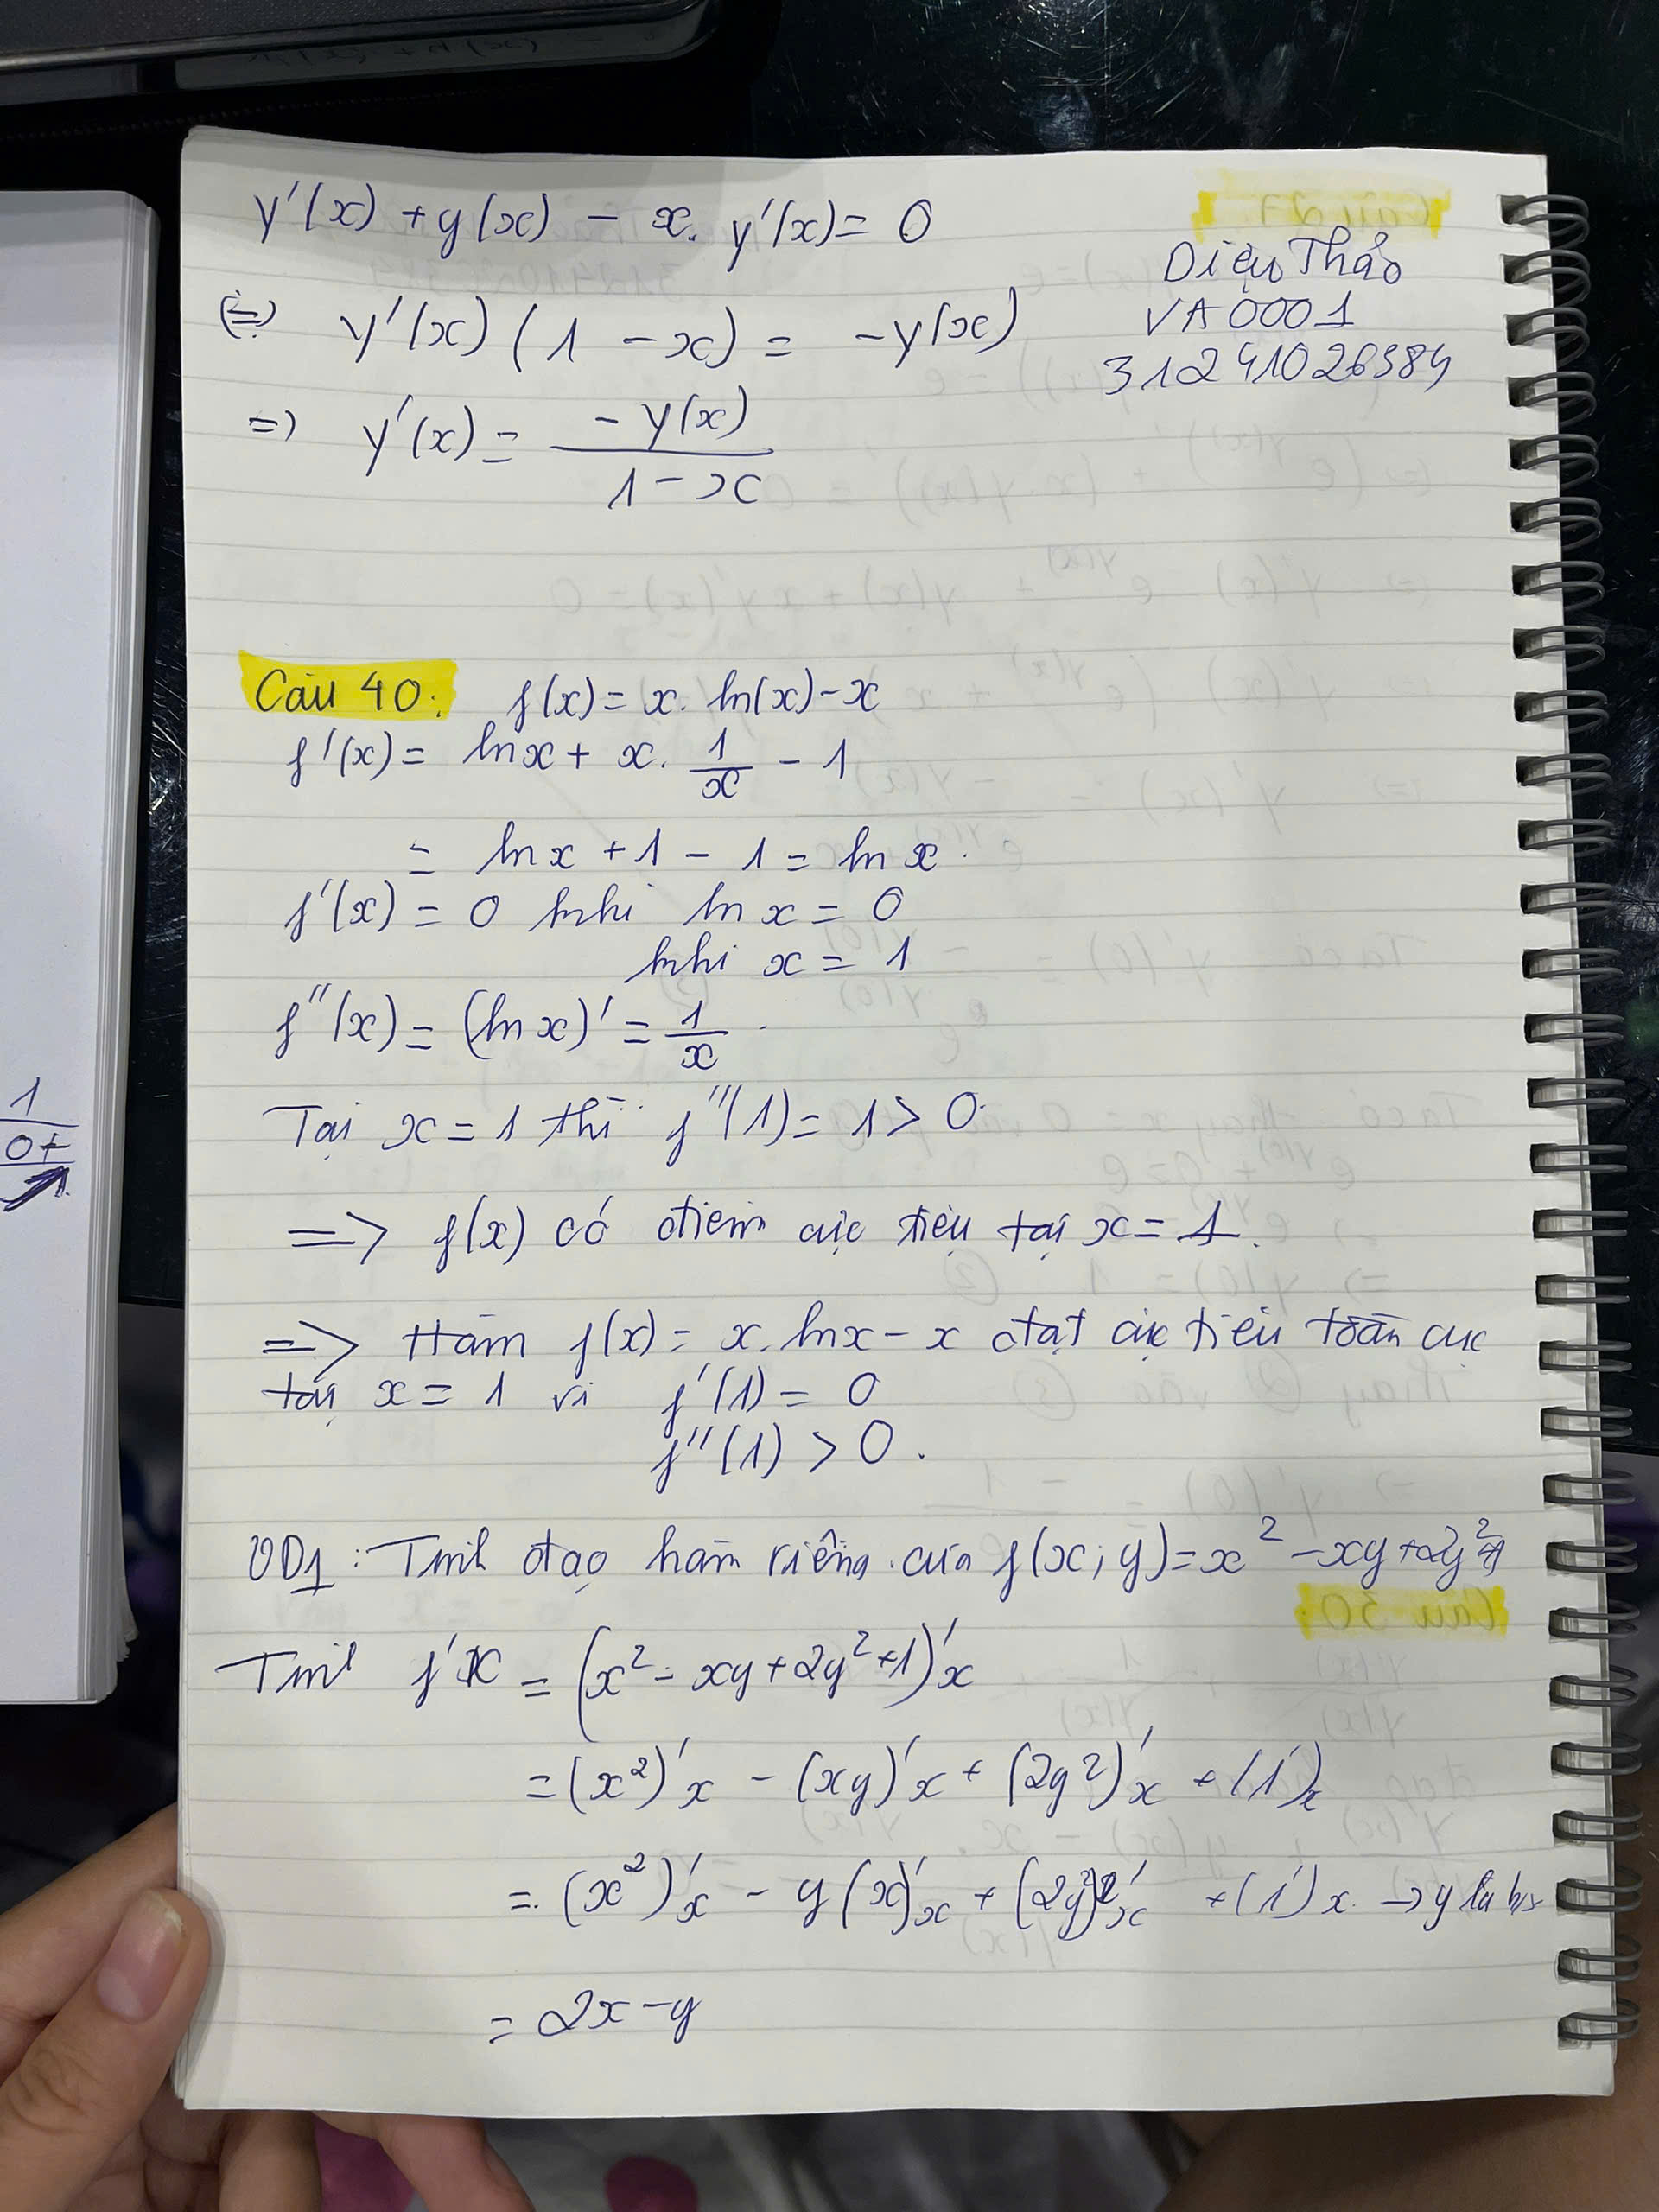 y'(x) + y(x) - x. y'(x) = 0
Diệu Thảo
VA0001
(=) y'(x) (1 - x) = -y(x)
31241026384
=) y'(x) = -y(x) / 1-x
Câu 40: f(x) = x. ln(x) - x
f'(x) = lnx + x. 1/x - 1
= lnx + 1 - 1 = ln x.
f'(x) = 0 khi ln x = 0
khi x = 1
f''(x) = (ln x)' = 1/x.
Tại x = 1 thì f''(1) = 1 > 0.
=> f(x) có điểm cực tiểu tại x = 1.
=> Hàm f(x) = x. lnx - x đạt cực tiểu toàn cục
tại x = 1 vì f'(1) = 0
f''(1) > 0.
VD1: Tính đạo hàm riêng của f(x; y) = x² - xy + 2y²
Tính f'x = (x² - xy + 2y² + 1)'x
= (x²)'x - (xy)'x + (2y²)'x + (1)'x
= (x²)'x - y(x)'x + (2y²)'x + (1)'x. → y là
= 2x - y
1
0+